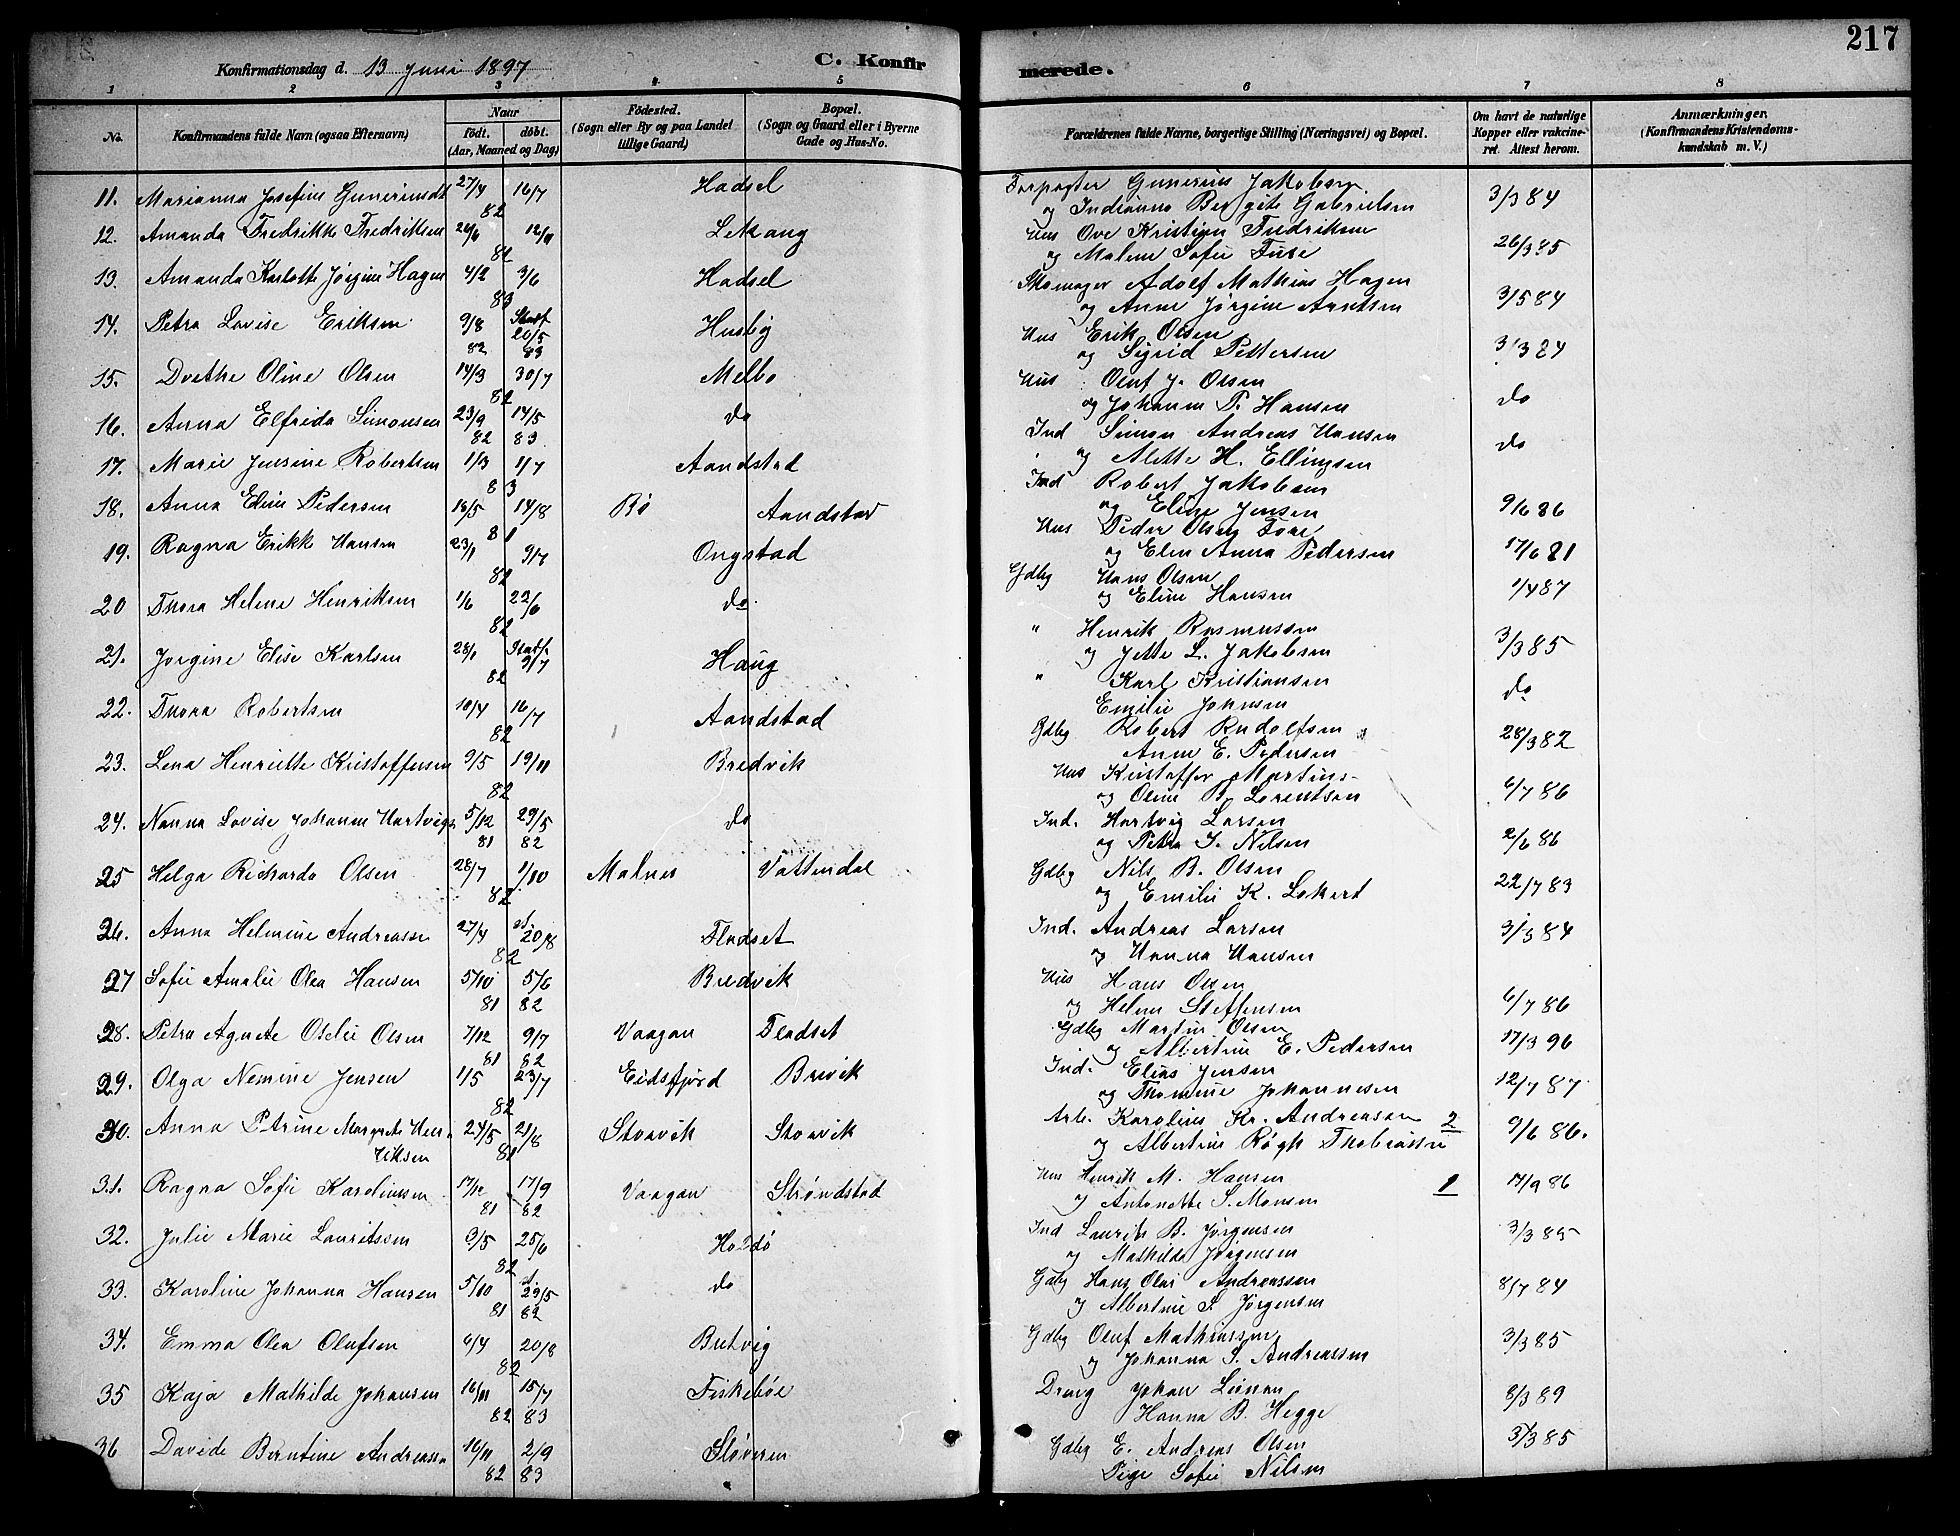 217
Konfirmationsdag d. 13 Juni 1897
C. Konfir merede.
1 2 3 4 5 6 7 8
No.
Konfirmandens fulde Navn (ogsaa Efternavn)
Naar
født. døbt.
(Aar, Maaned og Dag)
Fødested.
(Sogn eller By og paa Landet
tillige Gaard)
Bopæl.
(Sogn og Gaard eller i Byerne
Gade og Hus-No.
Forældrenes fulde Navne, borgerlige Stilling (Næringsvei) og Bopæl.
Om havt de naturlige
Kopper eller vakcine-
ret. Attest herom.
Anmærkninger.
(Konfirmandens Kristendoms-
kundskab m. V.)
11. Marianna Josefine 27/4 16/7 82 Hadsel Forpagter Gunerius Jakobsen 3/3 84
og Indianna Bergite Gabrielsen
12. Amanda Fredrikke Fredriksen 82 Lekang Hus Ove Kristian Fredriksen 26/3 85
og Malene Sofie
13. Amanda Karlotte Jørgine Hagen 4/2 3/6 83 Hadsel Skomager Adolf Mathias Hagen 3/5 84
og Anne Jørgine Arntsen
14. Petra Lovise Eriksen 9/8 82 20/5 83 Husby Hus Erik Olsen 3/3 84
og Sigrid Pettersen
15. Dorthe Oline Olsen 14/3 30/7 82 Melbo Hus Oluf J. Olsen do
og Johanna P. Hansen
16. Anna Elfrida Simonsen 23/9 82 14/5 83 do Ind Simon Andreas Hansen do
og Alette H. Ellingsen
17. Marie Jensine Robertsen 1/3 1/7 83 Aandstad Ind Robert Jakobsen 9/6 86
og Eline Jensen
18. Anna Eline Pedersen 14/8 81 Bø Aandstad Hus Peder Olsen 17/6 81
og Elen Anna Pedersen
19. Ragna Erikke Hansen 23/1 9/7 82 Ongstad Gdbg Hans Olsen 1/4 87
og Eline Hansen
20 Thora Helene Henriksen 1/6 22/6 82 do. " Henrik Rasmussen 3/3 85
og Jette L. Jakobsen
21. Jørgine Elise Karlsen 28/1 9/7 82 Haug " Karl Kristiansen do
Emilie Johnsen
22. Thora Robertsen 10/4 16/7 82 Aandstad Gdbg Robert Rudolfsen 28/3 82
Anne E. Pedersen
23. Lena Henriette Kristoffersen 9/5 19/11 82 Bredvik Hus Kristoffer Martins- 6/7 86
og Oline B. Lorentsen
24. Nanna Lovise Johanne Hartvigs 5/12 81 29/5 82 do Ind. Hartvig Larsen 2/6 86
og Petra J. Nilsen
25 Helga Rickarda Olsen 28/7 1/10 82 Malnes Vottendal Gdbg Nils B. Olsen 22/7 83
og Emilie K. Lokert
26. Anna Helmine Andreasse 27/4 20/8 82 Fladset Ind. Andreas Larsen 3/3 84
og Hanna Hansen
27 Sofie Amalie Olea Hansen 5/10 81 5/6 82 Bredvik Hus Hans Olsen 6/7 86
og Helene Steffensen
28. Petra Agnete Oselie Olsen 7/12 81 9/7 82 Vaagan Fladset Gdbg Martin Olsen 17/3 96
og Albertine E. Pedersen
29. Olga Nemine Jensen 1/5 23/7 82 Eidsfjord Brevik Ind. Elias Jensen 12/7 87
og Thomine Johannesen
30. Anna Petrine Margrete Hen- 24/5 21/8 81 Storvik Storvik Arb. Karolius Kr. Andreassen 2 9/6 86.
riksen og Albertine Røgh Thobiassen
31. Ragna Sofie Karoliussen 17/12 81 17/9 82 Vaagan Strøndstad Hus Henrik M. Hansen 1 14/9 86
og Antonette S. Monsen
32. Julie Marie Lauritssen 3/5 25/6 82 Hadsø Ind Laurits B. Jørgensen 3/3 85
og Mathilde Jørgensen
33. Karoline Johanna Hansen 5/10 81 29/5 82 do Gdbg Hans Olai Andreassen 8/7 84
og Albertine S. Jørgensen
34. Emma Olea Olufsen 6/4 20/8 82 Butvig Gdbg Oluf Mathiassen 3/3 85
og Johanna S. Andreassen
35 Kaja Mathilde Johansen 16/11 82 15/7 83 Fiskebøe Johan 8/3 89
Hanna B. Hegge
36 Davide Berntine Andreassen 16/11 82 2/9 83 Støveren Gdbg E. Andreas Olsen 3/3 85
Pige Sofie Nilsen